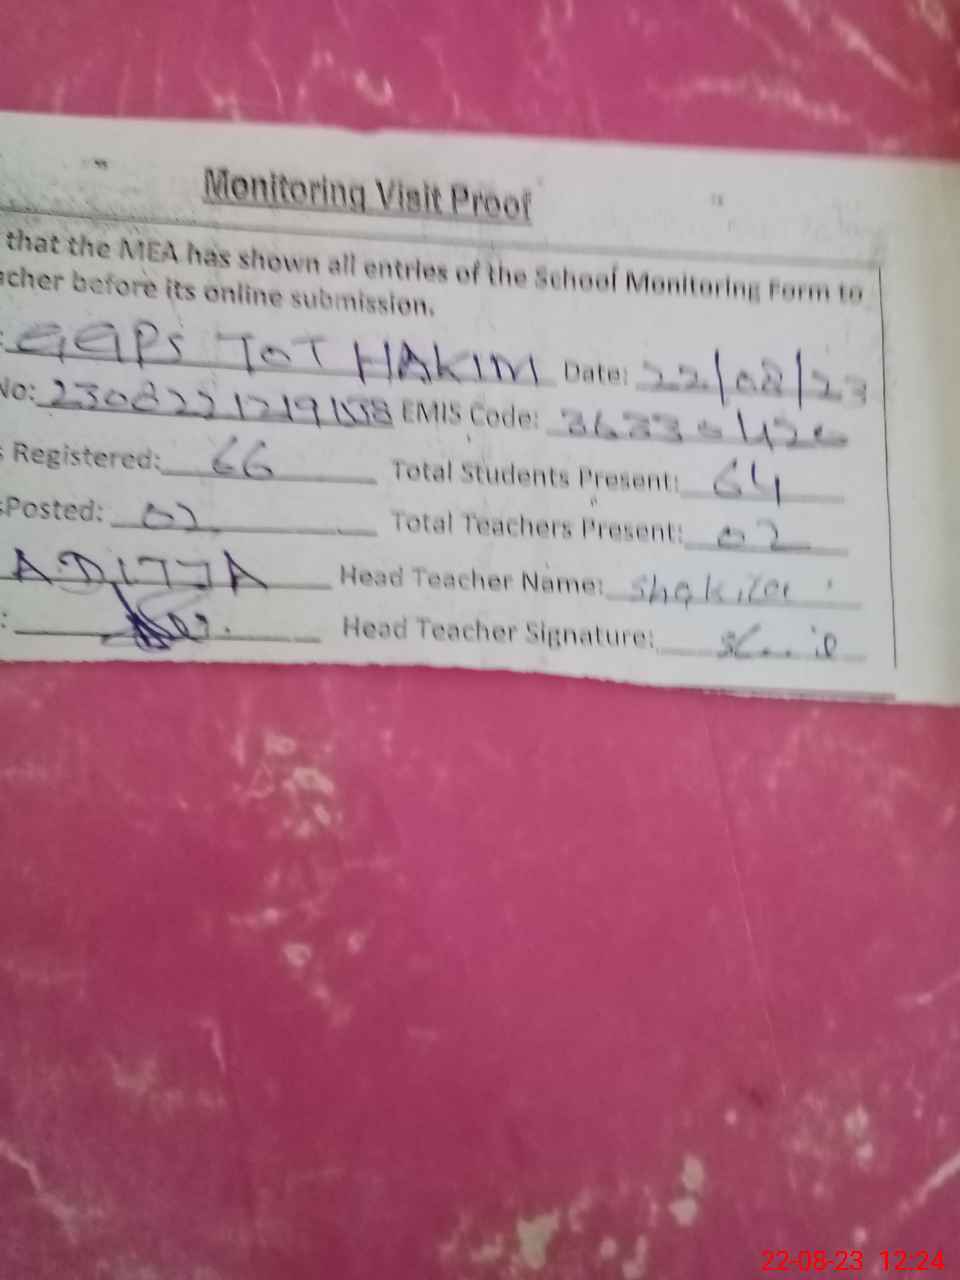 Monitoring Visit Proof
that the MEA has shown all entries of the School Monitoring Form to
acher before its online submission.
GGPS TOT HAKIM Date: 22/08/23
No: EMIS Code:
s Registered: 66 Total Students Present: 64
sPosted: 02 Total Teachers Present: 02
Head Teacher Name:
: Head Teacher Signature:
22-08-23 12:24